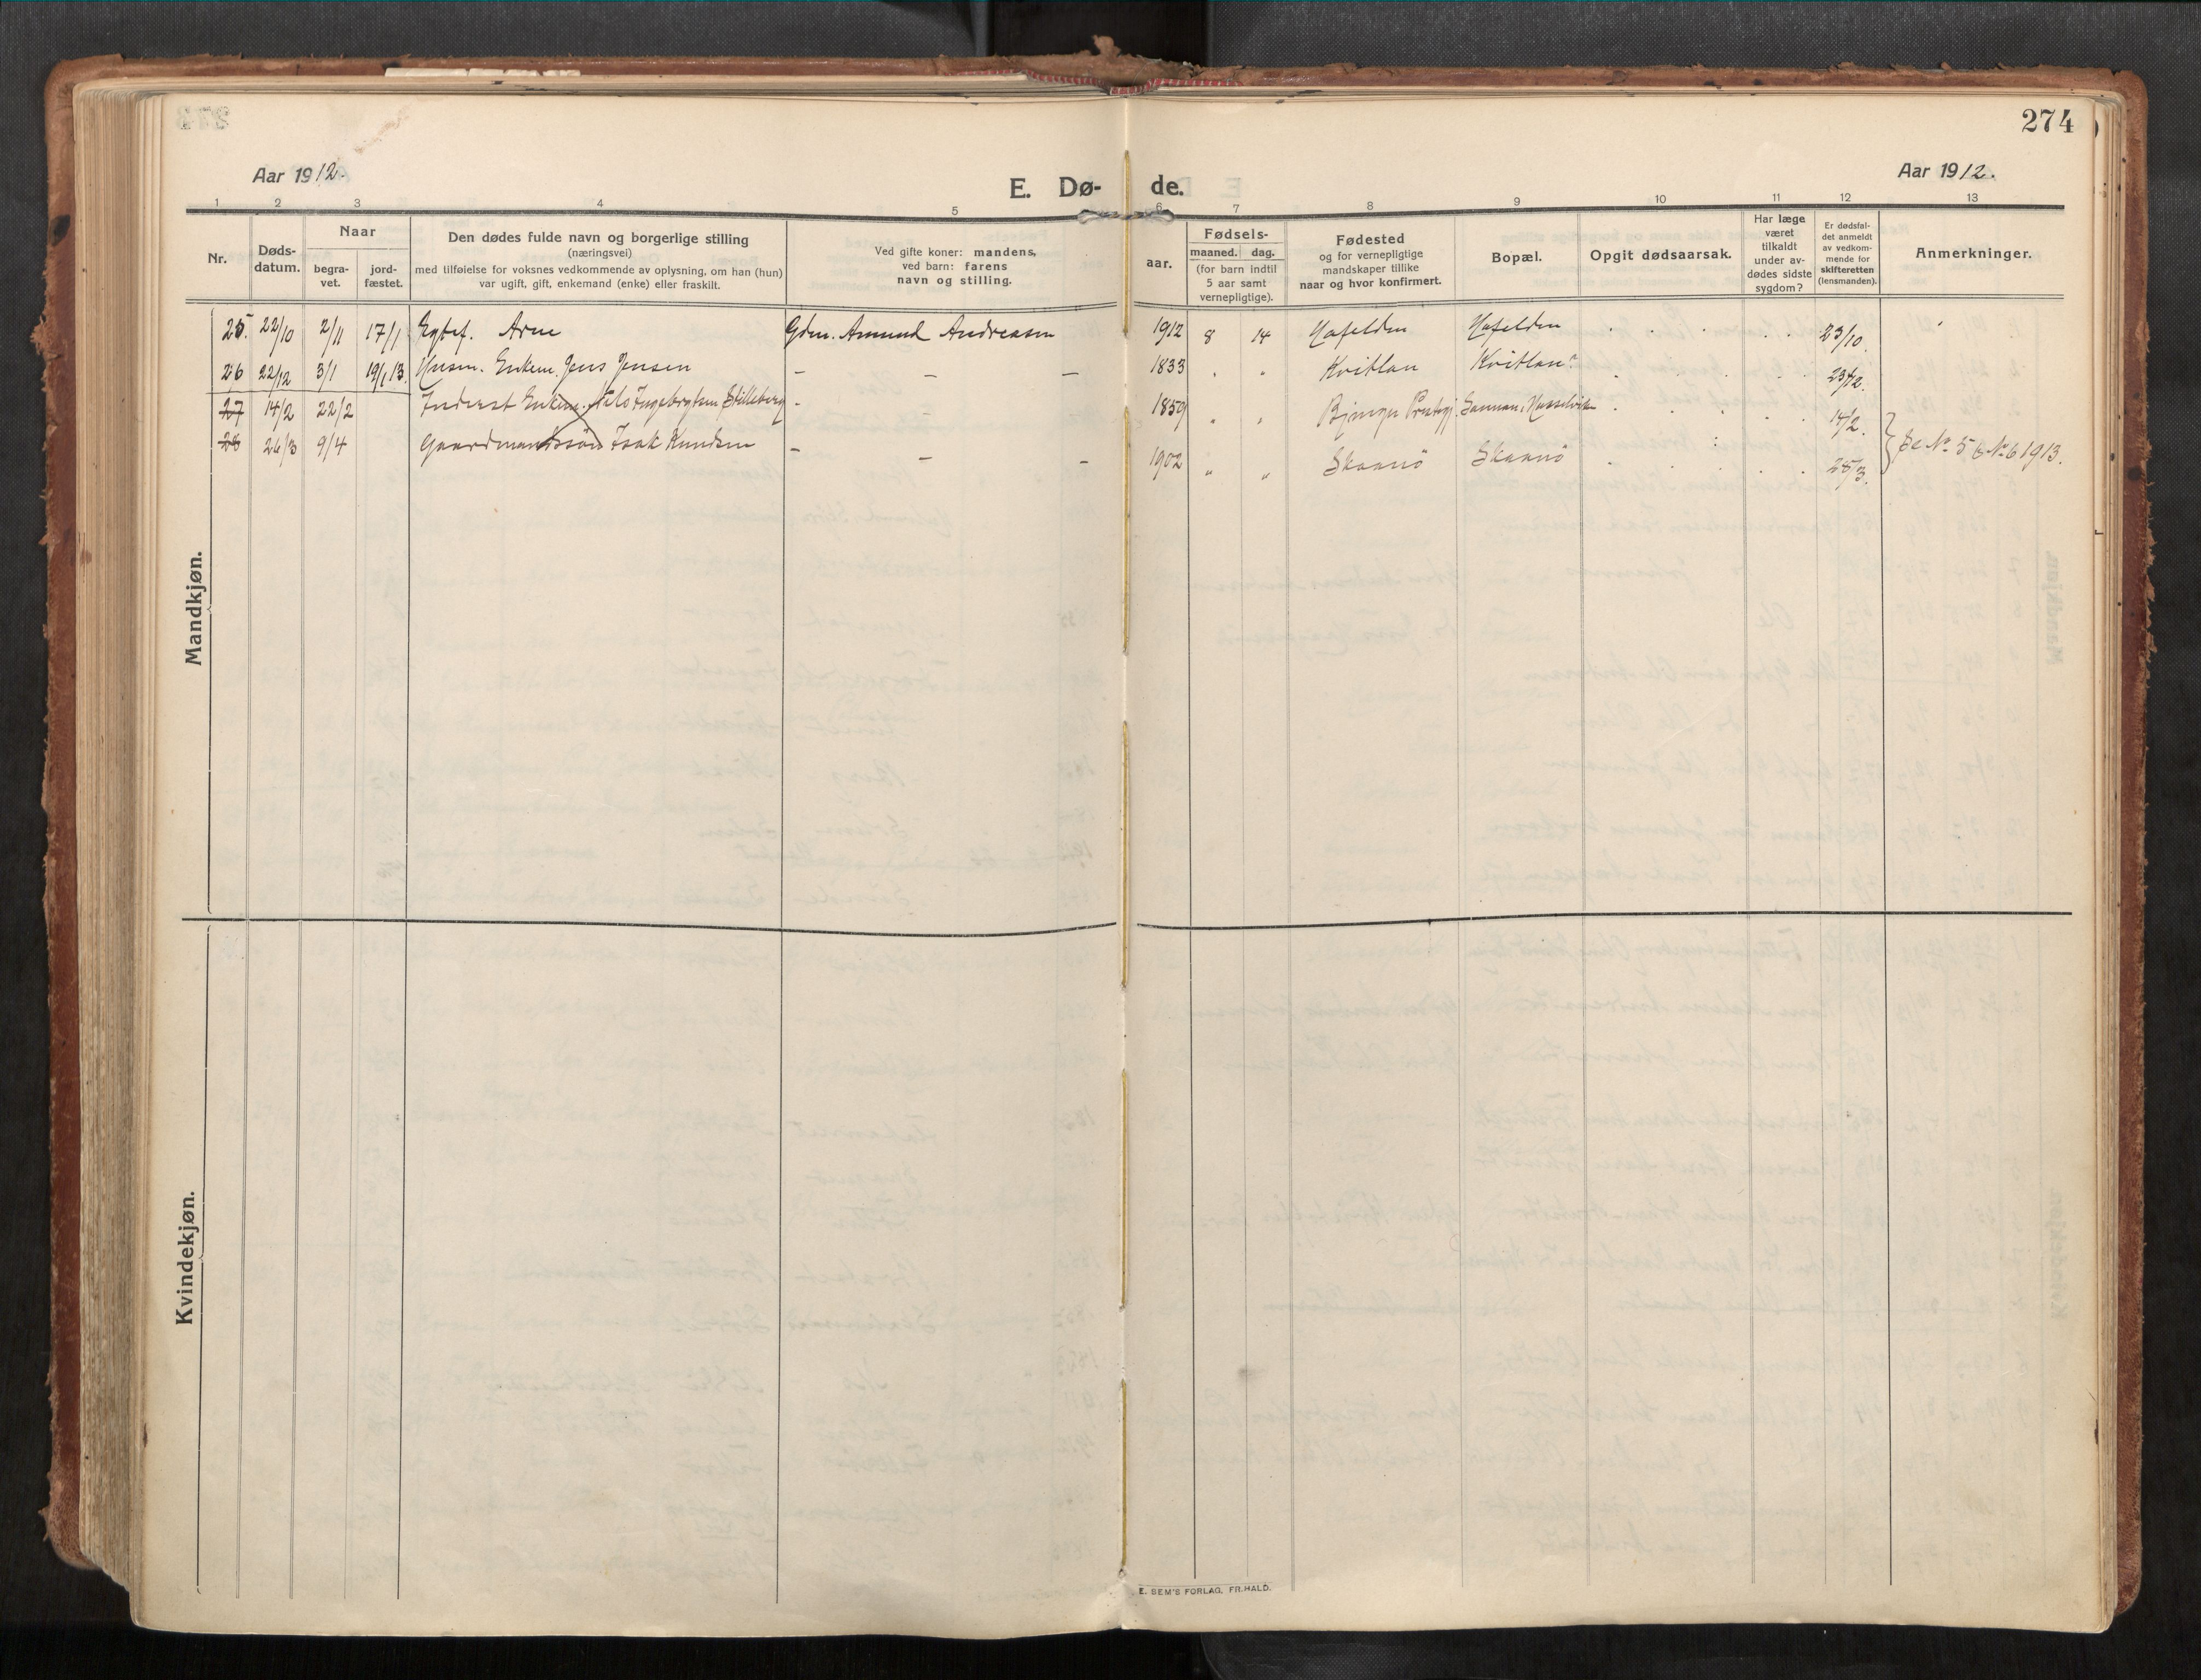 274
Aar 1912.
E. Dø- de.
Aar 1912.
1 2 3 4 5 6 7 8 9 10 11 12 13
Nr.
Døds-
datum.
Naar
begra-
vet.
jord-
fæstet.
Den dødes fulde navn og borgerlige stilling
(næringsvei)
med tilføielse for voksnes vedkommende av oplysning, om han (hun)
var ugift, gift, enkemand (enke) eller fraskilt.
Ved gifte koner: mandens,
ved barn: farens
navn og stilling.
Fødsels-
aar.
maaned. dag.
(for barn indtil
5 aar samt
vernepligtige).
Fødested
og for vernepligtige
mandskaper tillike
naar og hvor konfirmert.
Bopæl.
Opgit dødsaarsak.
Har læge
været
tilkaldt
under av-
dødes sidste
sygdom?
Er dødsfal-
det anmeldt
av vedkom-
mende for
skifteretten
(lensmanden).
Anmerkninger.
25. 22/10 2/11 17/1 Egtef. Arne Gdm. Amund Andreasen 1912 8 14 23/10
26 22/12 3/1 19/1 13. Husm. Enkem. Jens Jensen – – – 1833 " " Kvitlan Kvitlan 23/12.
27 14/2 22/2 Inderst Enkem. Nils Ingebrigtsen Stilleberg – 1859 " " Bjugn Prstegj. 14/2.
28 26/3 9/4 Gaardmandssøn Isak Knudsen – – – 1902 " " Skaanö Skaanö 28/3. Se No 5 & No 6 1913.
Mandkjøn.
Kvindekjøn.
E. SEM'S FORLAG, FR.HALD.